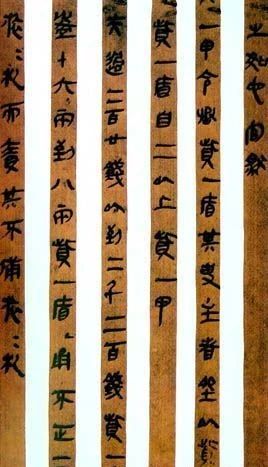 之如它官然
一甲令丞貲一盾其吏主者坐以貲
貲一盾自二以上貲一甲
夫過二百廿錢以到二千二百錢貲一
盈十六兩到八兩貲一盾甬不正
旅=札而責其不備旅=札